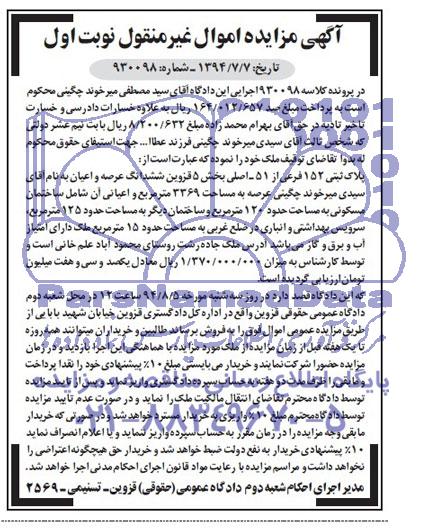 آگهی مزایده اموال غیرمنقول نوبت اول
تاریخ: ۱۳۹۴/۷/۷ ـ شماره: ۹۳۰۰۹۸
در پرونده کلاسه ۹۳۰۰۹۸ اجرایی این دادگاه آقای سید مصطفی میرخوند چگینی محکوم
است به پرداخت مبلغ صد ۱۶۴/۰۱۲/۶۵۷ ریال به علاوه خسارات دادرسی و خسارت
تاخیر تادیه در حق آقای بهرام محمد زاده مبلغ ۸/۲۰۰/۶۳۲ ریال بابت نیم عشر دولتی
که شخص ثالث آقای سیدی میرخوند چگینی فرزند عطا... جهت استیفای حقوق محکوم
له بدوا تقاضای توقیف ملک خود را نموده که عبارت است از:
پلاک ثبتی ۱۵۲ فرعی از ۵۱ ـ اصلی بخش ۵ قزوین ششدانگ عرصه و اعیان به نام آقای
سیدی میرخوند چگینی عرصه به مساحت ۳۳۶۹ مترمربع و اعیانی آن شامل ساختمان
مسکونی به مساحت حدود ۱۲۰ مترمربع و ساختمان دیگر به مساحت حدود ۱۲۵ مترمربع،
سرویس بهداشتی و انباری در ضلع غربی به مساحت حدود ۱۵ مترمربع ملک دارای امتیاز
آب و برق و گاز می باشد آدرس ملک جاده رشت روستای محمود آباد علم خانی است و
توسط کارشناس به میزان ۱/۳۷۰/۰۰۰/۰۰۰ ریال معادل یکصد و سی و هفت میلیون
تومان ارزیابی گردیده است.
که این دادگاه قصد دارد در روز سه شنبه مورخه ۹۴/۸/۵ ساعت ۱۲ در محل شعبه دوم
دادگاه عمومی حقوقی قزوین واقع در اداره کل دادگستری قزوین خیابان شهید بابایی از
طریق مزایده عمومی اموال فوق را به فروش برساند طالبین و خریداران میتوانند همه روزه
تا یک هفته قبل از زمان مزایده از ملک مورد مزایده با هماهنگی این اجرا بازدید و در زمان
مزایده حضورا شرکت نمایند و خریدار می بایستی مبلغ ۱۰٪ پیشنهادی خود را نقدا پرداخت
و مابقی را ظرف مدت دو هفته به حساب سپرده دادگستری واریز نماید و پس از تایید مزایده
توسط دادگاه محترم تقاضای انتقال مالکیت ملک را نماید و در صورت عدم تایید مزایده
توسط دادگاه محترم مبلغ ۱۰٪ واریزی به خریدار مسترد خواهد شد و در صورتی که خریدار
مابقی وجه مزایده را در زمان مقرر به حساب سپرده واریز ننماید و یا اعلام انصراف نماید
۱۰٪ پیشنهادی خریدار به نفع دولت ضبط خواهد شد و خریدار حق هیچگونه اعتراضی را
نخواهد داشت و مراسم مزایده با رعایت مواد قانون اجرای احکام مدنی اجرا خواهد شد.
مدیر اجرای احکام شعبه دوم دادگاه عمومی (حقوقی) قزوین ـ تسنیمی ـ ۲۵۶۹
۰۲۱-۸۸۳۴۹۶۷۰-۵